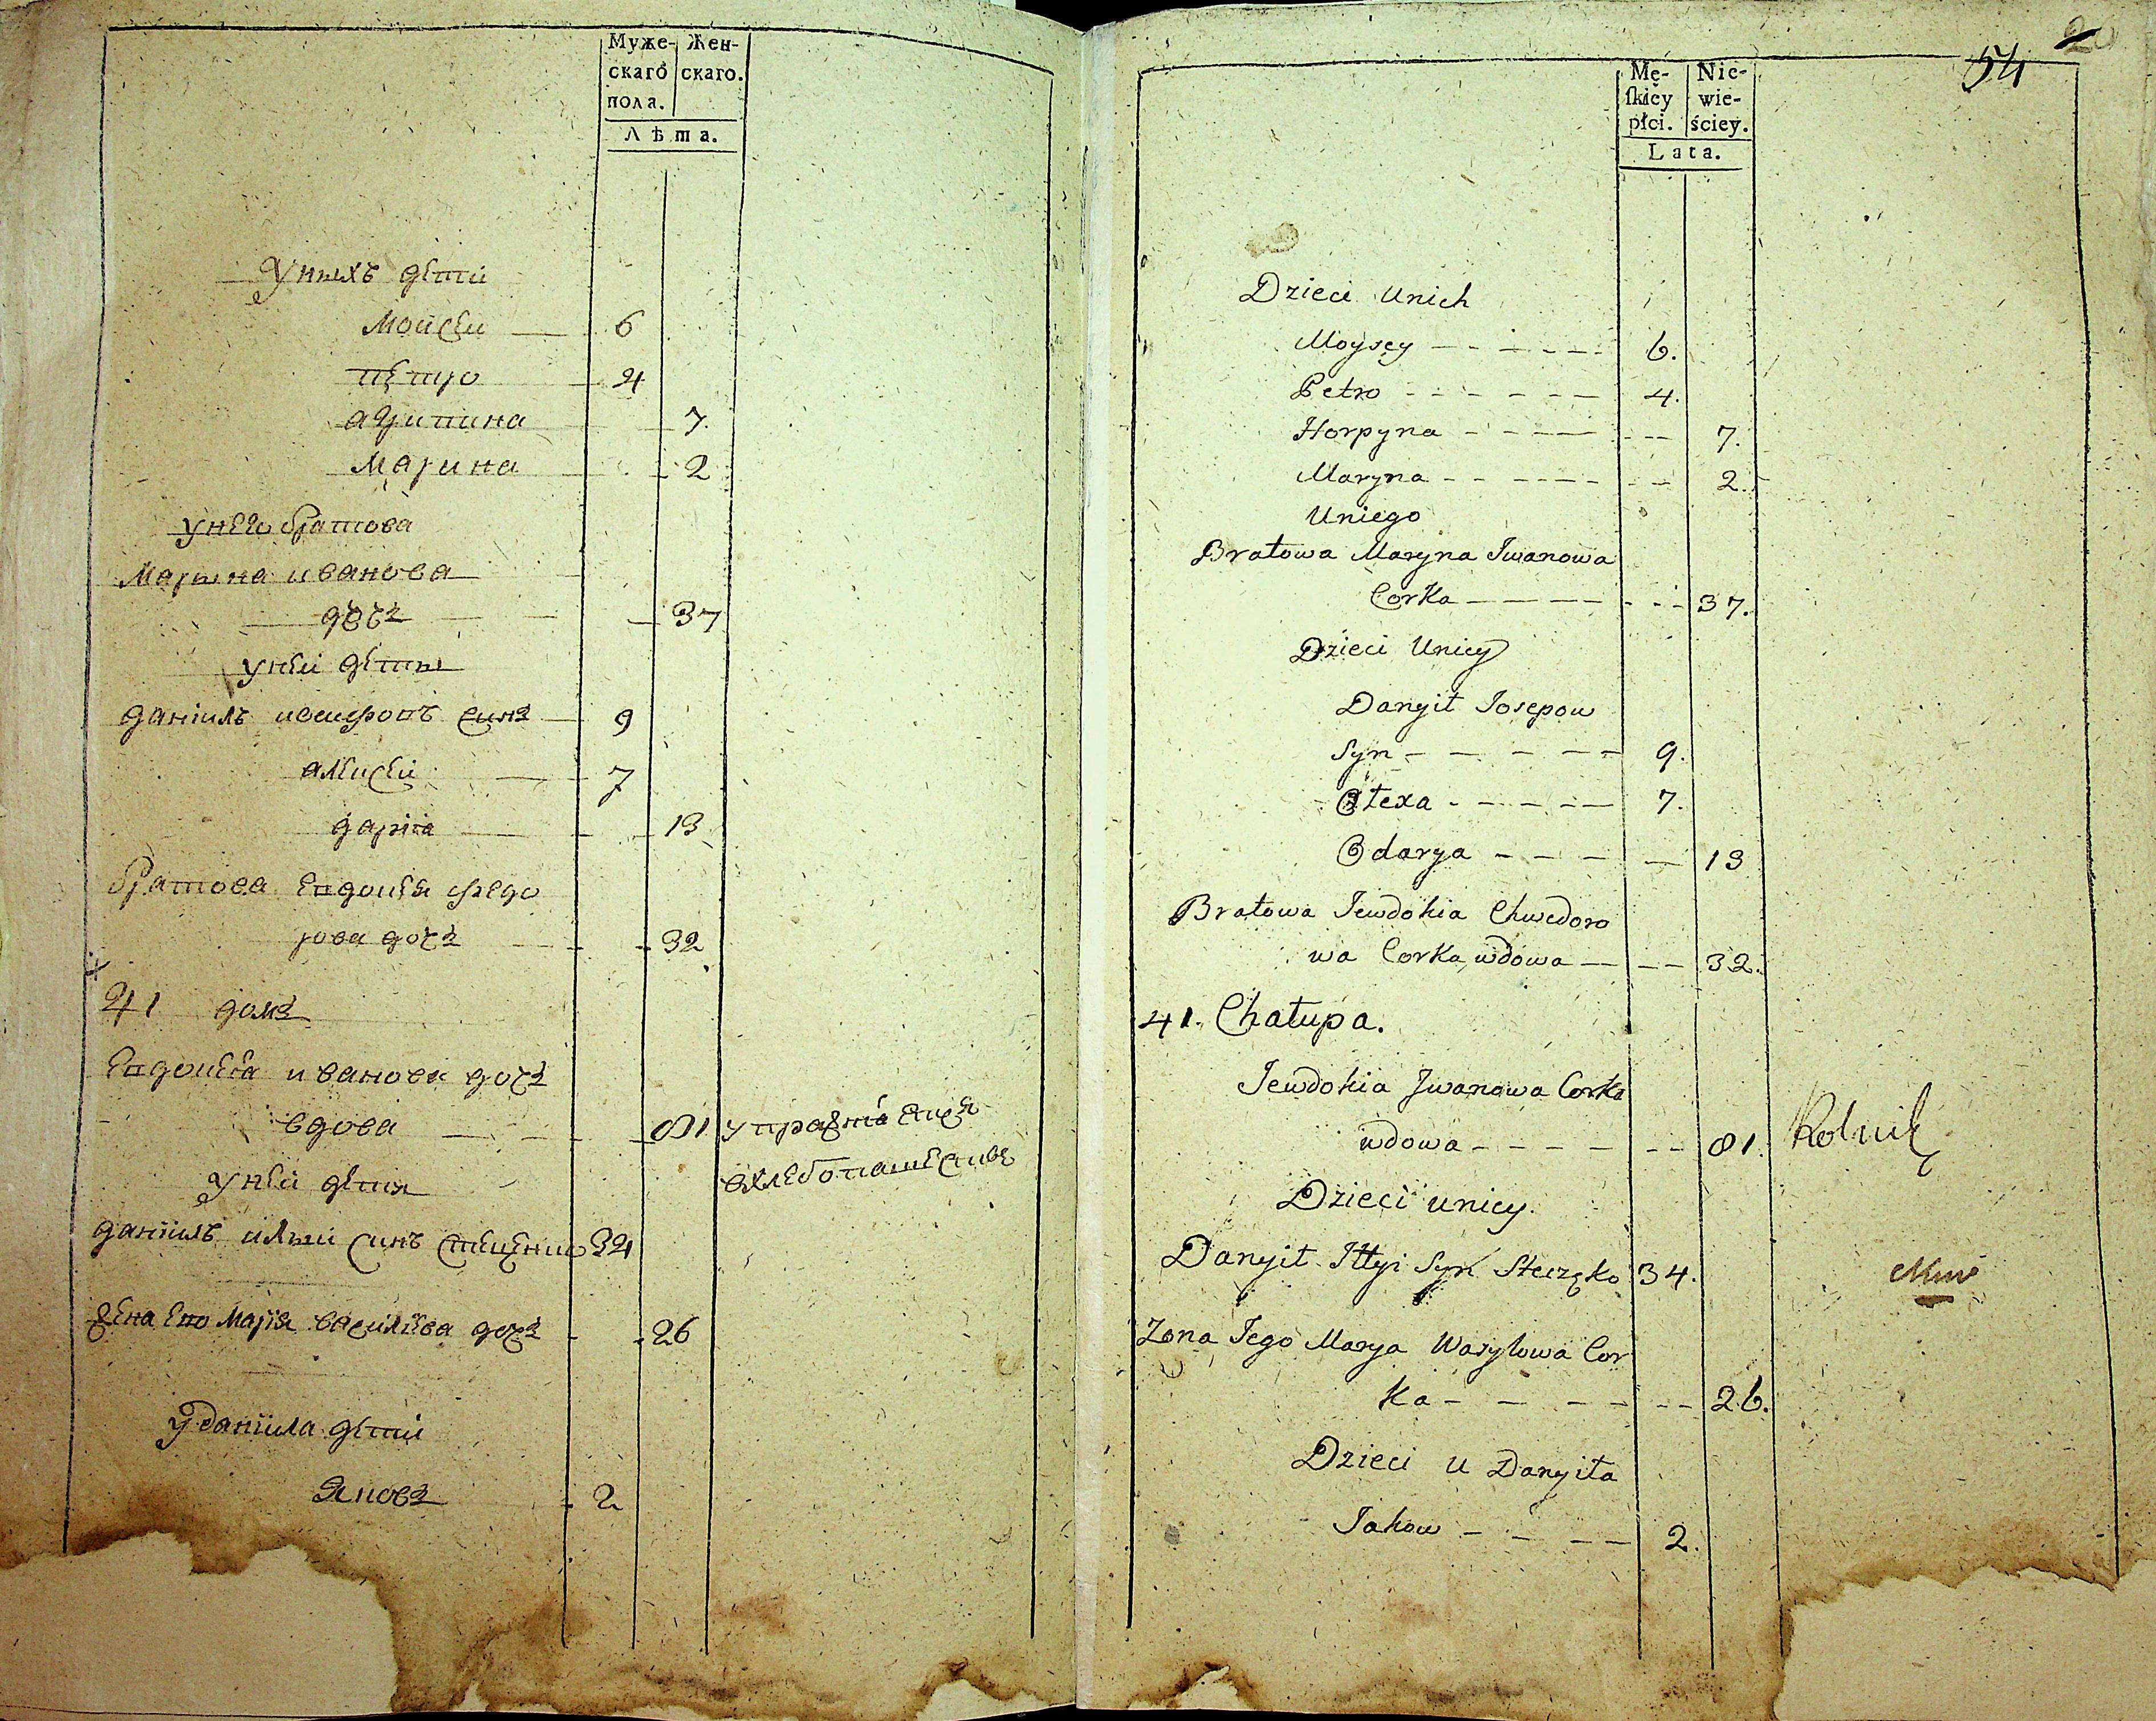 Муже- Жен-
скаго скаго.
пола.
Лѣта.
Унихъ дети
Мойсеи 6
петро 4
агрипина 7.
Марина 2
унего братова
Марына иванова
дочъ 37
уней деты
даніилъ иосифовъ синъ 9
алексеи 7
дарія 13
братова евдокія федо
рова дочъ 32
41 домъ
Евдокея иванова дочъ
вдова 81 упражняется
вхлебопашестве
уней дети
даніилъ илыи синъ стеценко 34
жена ево Марія василева дочъ 26
у даніила дети
Яковъ 2
54
Mę- Nie-
ſkiey wie-
płci. ściey.
Lata.
Dzieci Unich
Moysey 6.
Petro 4.
Horpyna 7.
Maryna 2.
Uniego
Bratowa Maryna Jwanowa
Corka 37.
Dzieci Uniey
Danyił Josepow
Syn 9.
Ołexa 7.
Odarya 13
Bratowa Jewdokia Chwedoro
wa Corka wdowa 32.
41. Chałupa.
Jewdokia Jwanowa Corka
wdowa 81. Rolnik
Dzieci uniey.
Danyił Jłłyi Syn Steczęko 34.
Zona Jego Marya Wasylowa Cor
ka 26.
Dzieci u Danyiła
Jakow 2.